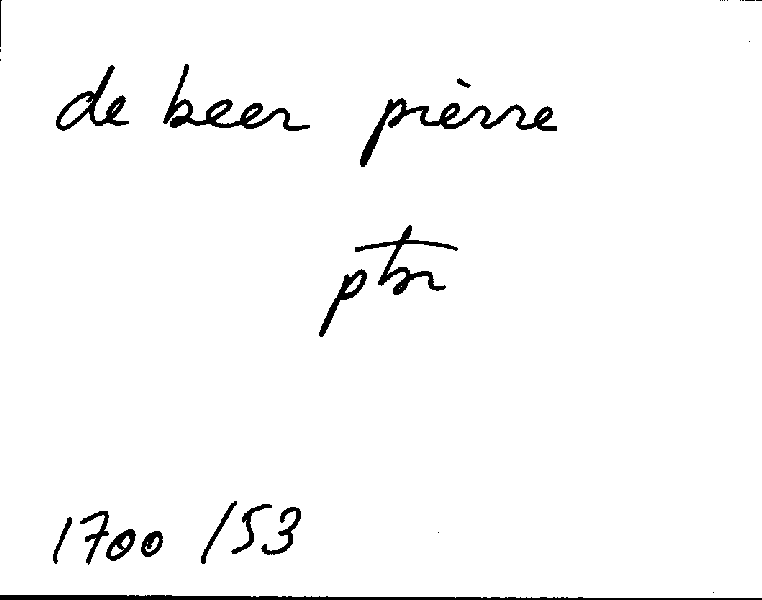 de beer pièrre
pbr
1700/53